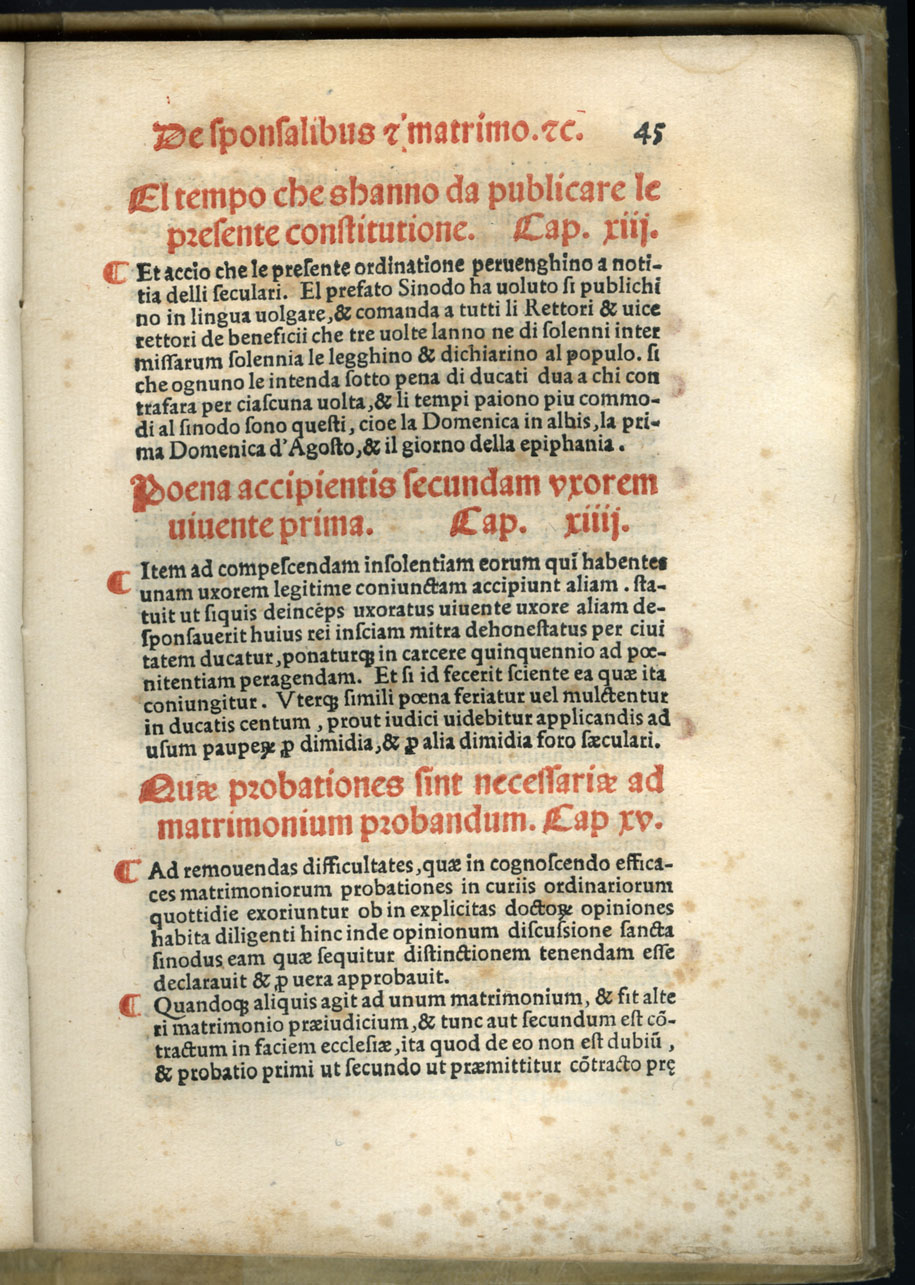 De sponsalibus ⁊ matrimo.⁊c. 45
El tempo che shanno da publicare le
presente constitutione. Cap. xiij.
¶ Et accio che le presente ordinatione peruenghino a noti-
tia delli seculari. El prefato Sinodo ha uoluto si publichi
no in lingua uolgare,& comanda a tutti li Rettori & uice
rettori de beneficii che tre uolte lanno ne di solenni inter
missarum solennia le legghino & dichiarino al populo. si
che ognuno le intenda sotto pena di ducati dua a chi con
trafara per ciascuna uolta,& li tempi paiono piu commo-
di al sinodo sono questi, cioe la Domenica in albis,la pri-
ma Domenica d'Agosto,& il giorno della epiphania.
Poena accipientis secundam vxorem
uiuente prima. Cap. xiiij.
¶ Item ad compescendam insolentiam eorum qui habentes
unam uxorem legitime coniunctam accipiunt aliam . sta-
tuit ut siquis deinceps uxoratus uiuente uxore aliam de-
sponsauerit huius rei insciam mitra dehonestatus per ciui
tatem ducatur,ponaturqꝫ in carcere quinquennio ad pœ-
nitentiam peragendam. Et si id fecerit sciente ea quæ ita
coniungitur. Vterqꝫ simili pœna feriatur uel mulctentur
in ducatis centum , prout iudici uidebitur applicandis ad
usum paupeꝝ ꝓ dimidia,& ꝓ alia dimidia foro sæculari.
Quæ probationes sint necessariæ ad
matrimonium probandum. Cap xv.
¶ Ad remouendas difficultates,quæ in cognoscendo effica-
ces matrimoniorum probationes in curiis ordinariorum
quottidie exoriuntur ob in explicitas doctoꝝ opiniones
habita diligenti hinc inde opinionum discussione sancta
sinodus eam quæ sequitur distinctionem tenendam esse
declarauit & ꝓ uera approbauit.
¶ Quandoqꝫ aliquis agit ad unum matrimonium, & fit alte
ri matrimonio præiudicium,& tunc aut secundum est cō-
tractum in faciem ecclesiæ,ita quod de eo non est dubiū ,
& probatio primi ut secundo ut præmittitur cōtracto prę